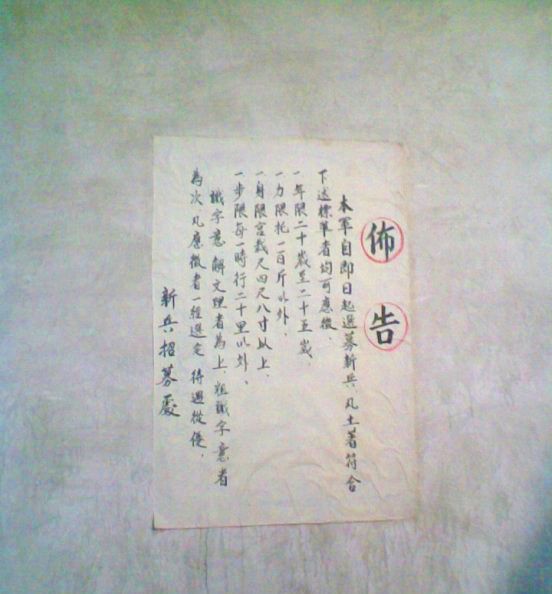 佈告
本軍自即日起選募新兵、凡土著符合
下述標準者均可應徵、
一年限二十歲至二十五歲、
一力限托一百斤以外、
一身限官裁尺四尺八寸以上、
一步限每一時行二十里以外、
識字意解文理者為上、粗識字意者
為次、凡應徵者一經選定待遇從優、
新兵招募處